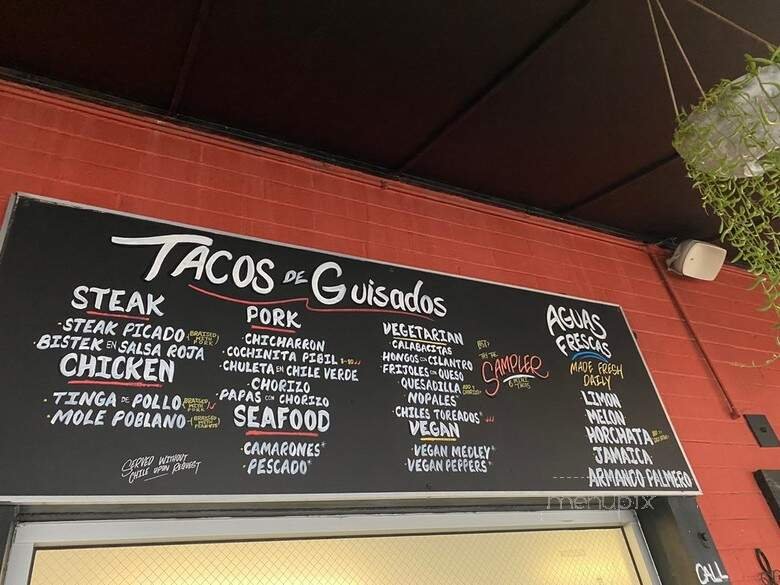 TACOS DE GUISADOS
STEAK
STEAK PICADO BRAISED WITH PORK
BISTEK EN SALSA ROJA
CHICKEN
TINGA DE POLLO BRAISED WITH PORK
MOLE POBLANO BRAISED WITH PEANUTS
SERVED WITHOUT
CHILE UPON REQUEST
PORK
CHICHARRON
COCHINITA PIBIL
CHULETA EN CHILE VERDE
CHORIZO
PAPAS CON CHORIZO
SEAFOOD
CAMARONES*
PESCADO*
VEGETARIAN
CALABACITAS
HONGOS CON CILANTRO
FRIJOLES CON QUESO
QUESADILLA ADD CHORIZO
NOPALES*
CHILES TOREADOS*
VEGAN
VEGAN MEDLEY*
VEGAN PEPPERS*
TRY THE
SAMPLER
6 MINI TACOS
AGUAS
FRESCAS
MADE FRESH
DAILY
LIMON
MELON
HORCHATA
JAMAICA
ARMANDO PALMERO
menupix
CALL